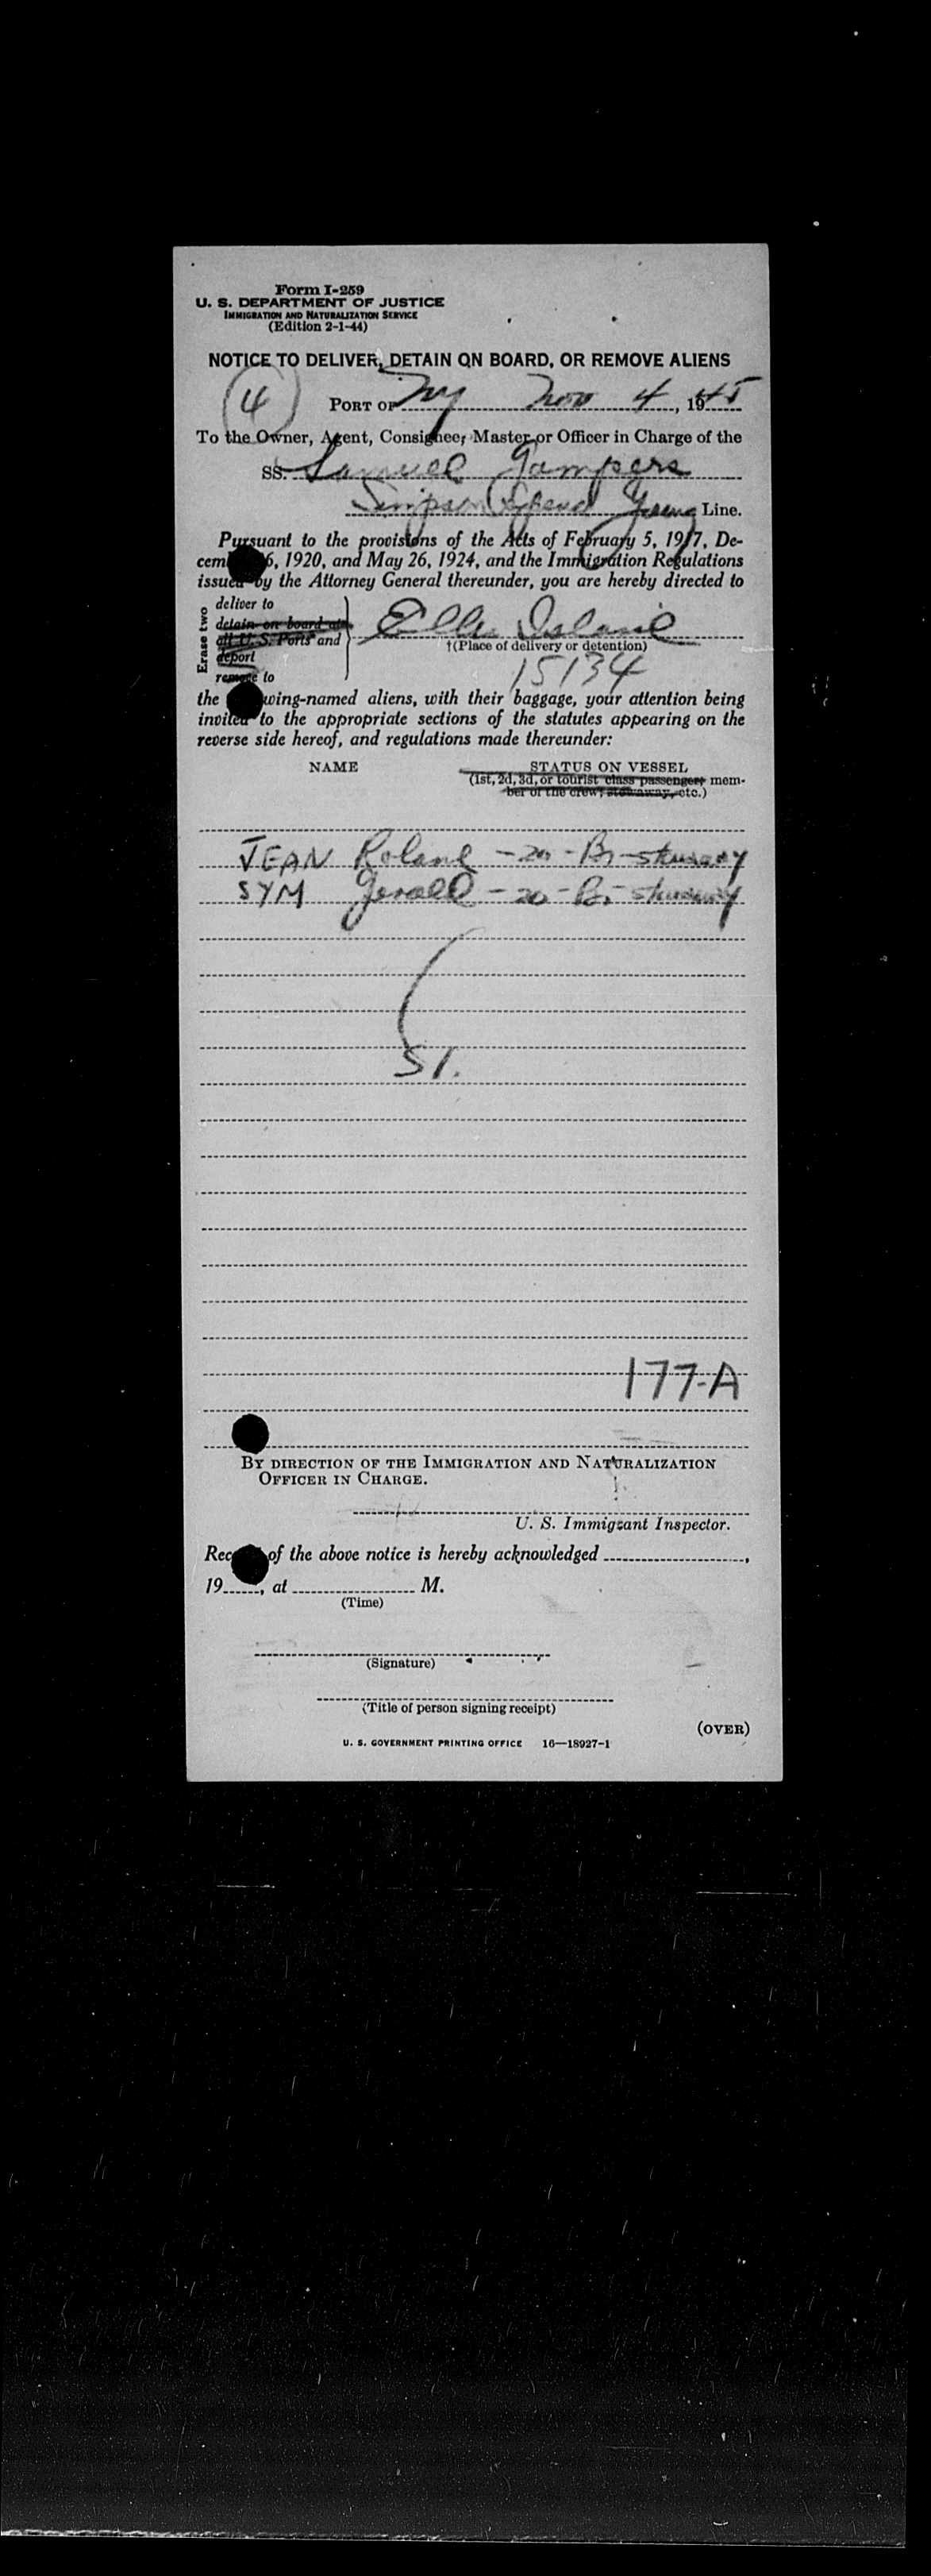 Form I-259
U. S. DEPARTMENT OF JUSTICE
IMMIGRATION AND NATURALIZATION SERVICE
(Edition 2-1-44)
NOTICE TO DELIVER, DETAIN ON BOARD, OR REMOVE ALIENS
(4) PORT OF NY Nov 4, 1945
To the Owner, Agent, Consignee, Master or Officer in Charge of the
SS. Samuel Gompers
Simpson Young Line.
Pursuant to the provisions of the Acts of February 5, 1917, De-
cem 6, 1920, and May 26, 1924, and the Immigration Regulations
issued by the Attorney General thereunder, you are hereby directed to
Erase two
deliver to
detain on board at
all U. S. Ports and
deport
remove to
Ellis Island
†(Place of delivery or detention)
15134
the wing-named aliens, with their baggage, your attention being
invited to the appropriate sections of the statutes appearing on the
reverse side hereof, and regulations made thereunder:
NAME STATUS ON VESSEL
(1st, 2d, 3d, or tourist class passenger, mem-
ber of the crew, stowaway, etc.)
JEAN Roland - 20 - Br - stowaway
SYM Gerald - 20 - Br - stowaway
S1.
177-A
BY DIRECTION OF THE IMMIGRATION AND NATURALIZATION
OFFICER IN CHARGE.
U. S. Immigrant Inspector.
Rec of the above notice is hereby acknowledged ,
19 , at M.
(Time)
(Signature)
(Title of person signing receipt)
(OVER)
U. S. GOVERNMENT PRINTING OFFICE 16—18927-1